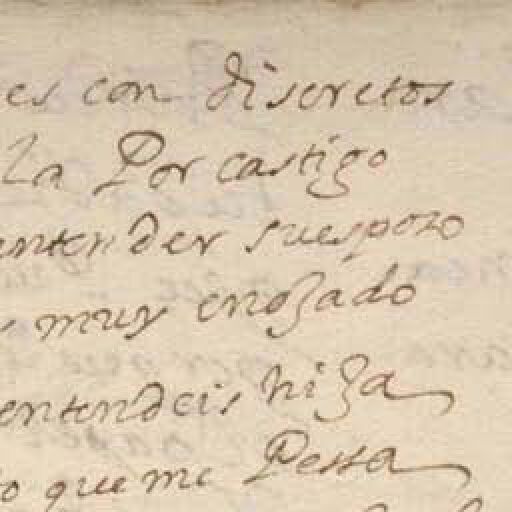 es con discretos
la Por castigo
entender suesposo
muy enojado
entendeis hija
o que me Pessa